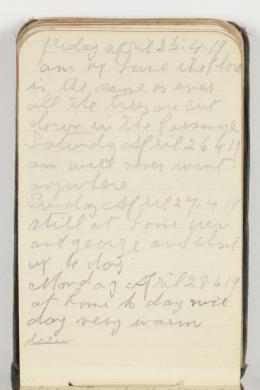 friday april 25.4.19
am up have the
in the same as ever
all the trees are cut
down in the passage
Saturday April 26.4.19
am well never went
anywhere
Sunday April 27.4.19
still at home
and george and
up to day
Monday April 28.4.19
at home to day nice
day very warm